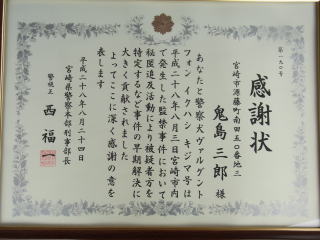 第一九〇号
感謝状
宮崎市源藤町南田五〇番地三
鬼島三郎様
あなたと警察犬ヴァルグント
フォン イクハシ キジマ号は
平成二十八年八月三日宮崎市内
で発生した監禁事件において
秘匿追及活動により被疑者方を
特定するなど事件の早期解決に
大きく貢献されました
よってここに深く感謝の意を
表します
平成二十八年八月二十四日
宮崎県警察本部刑事部長
警視正 西福一